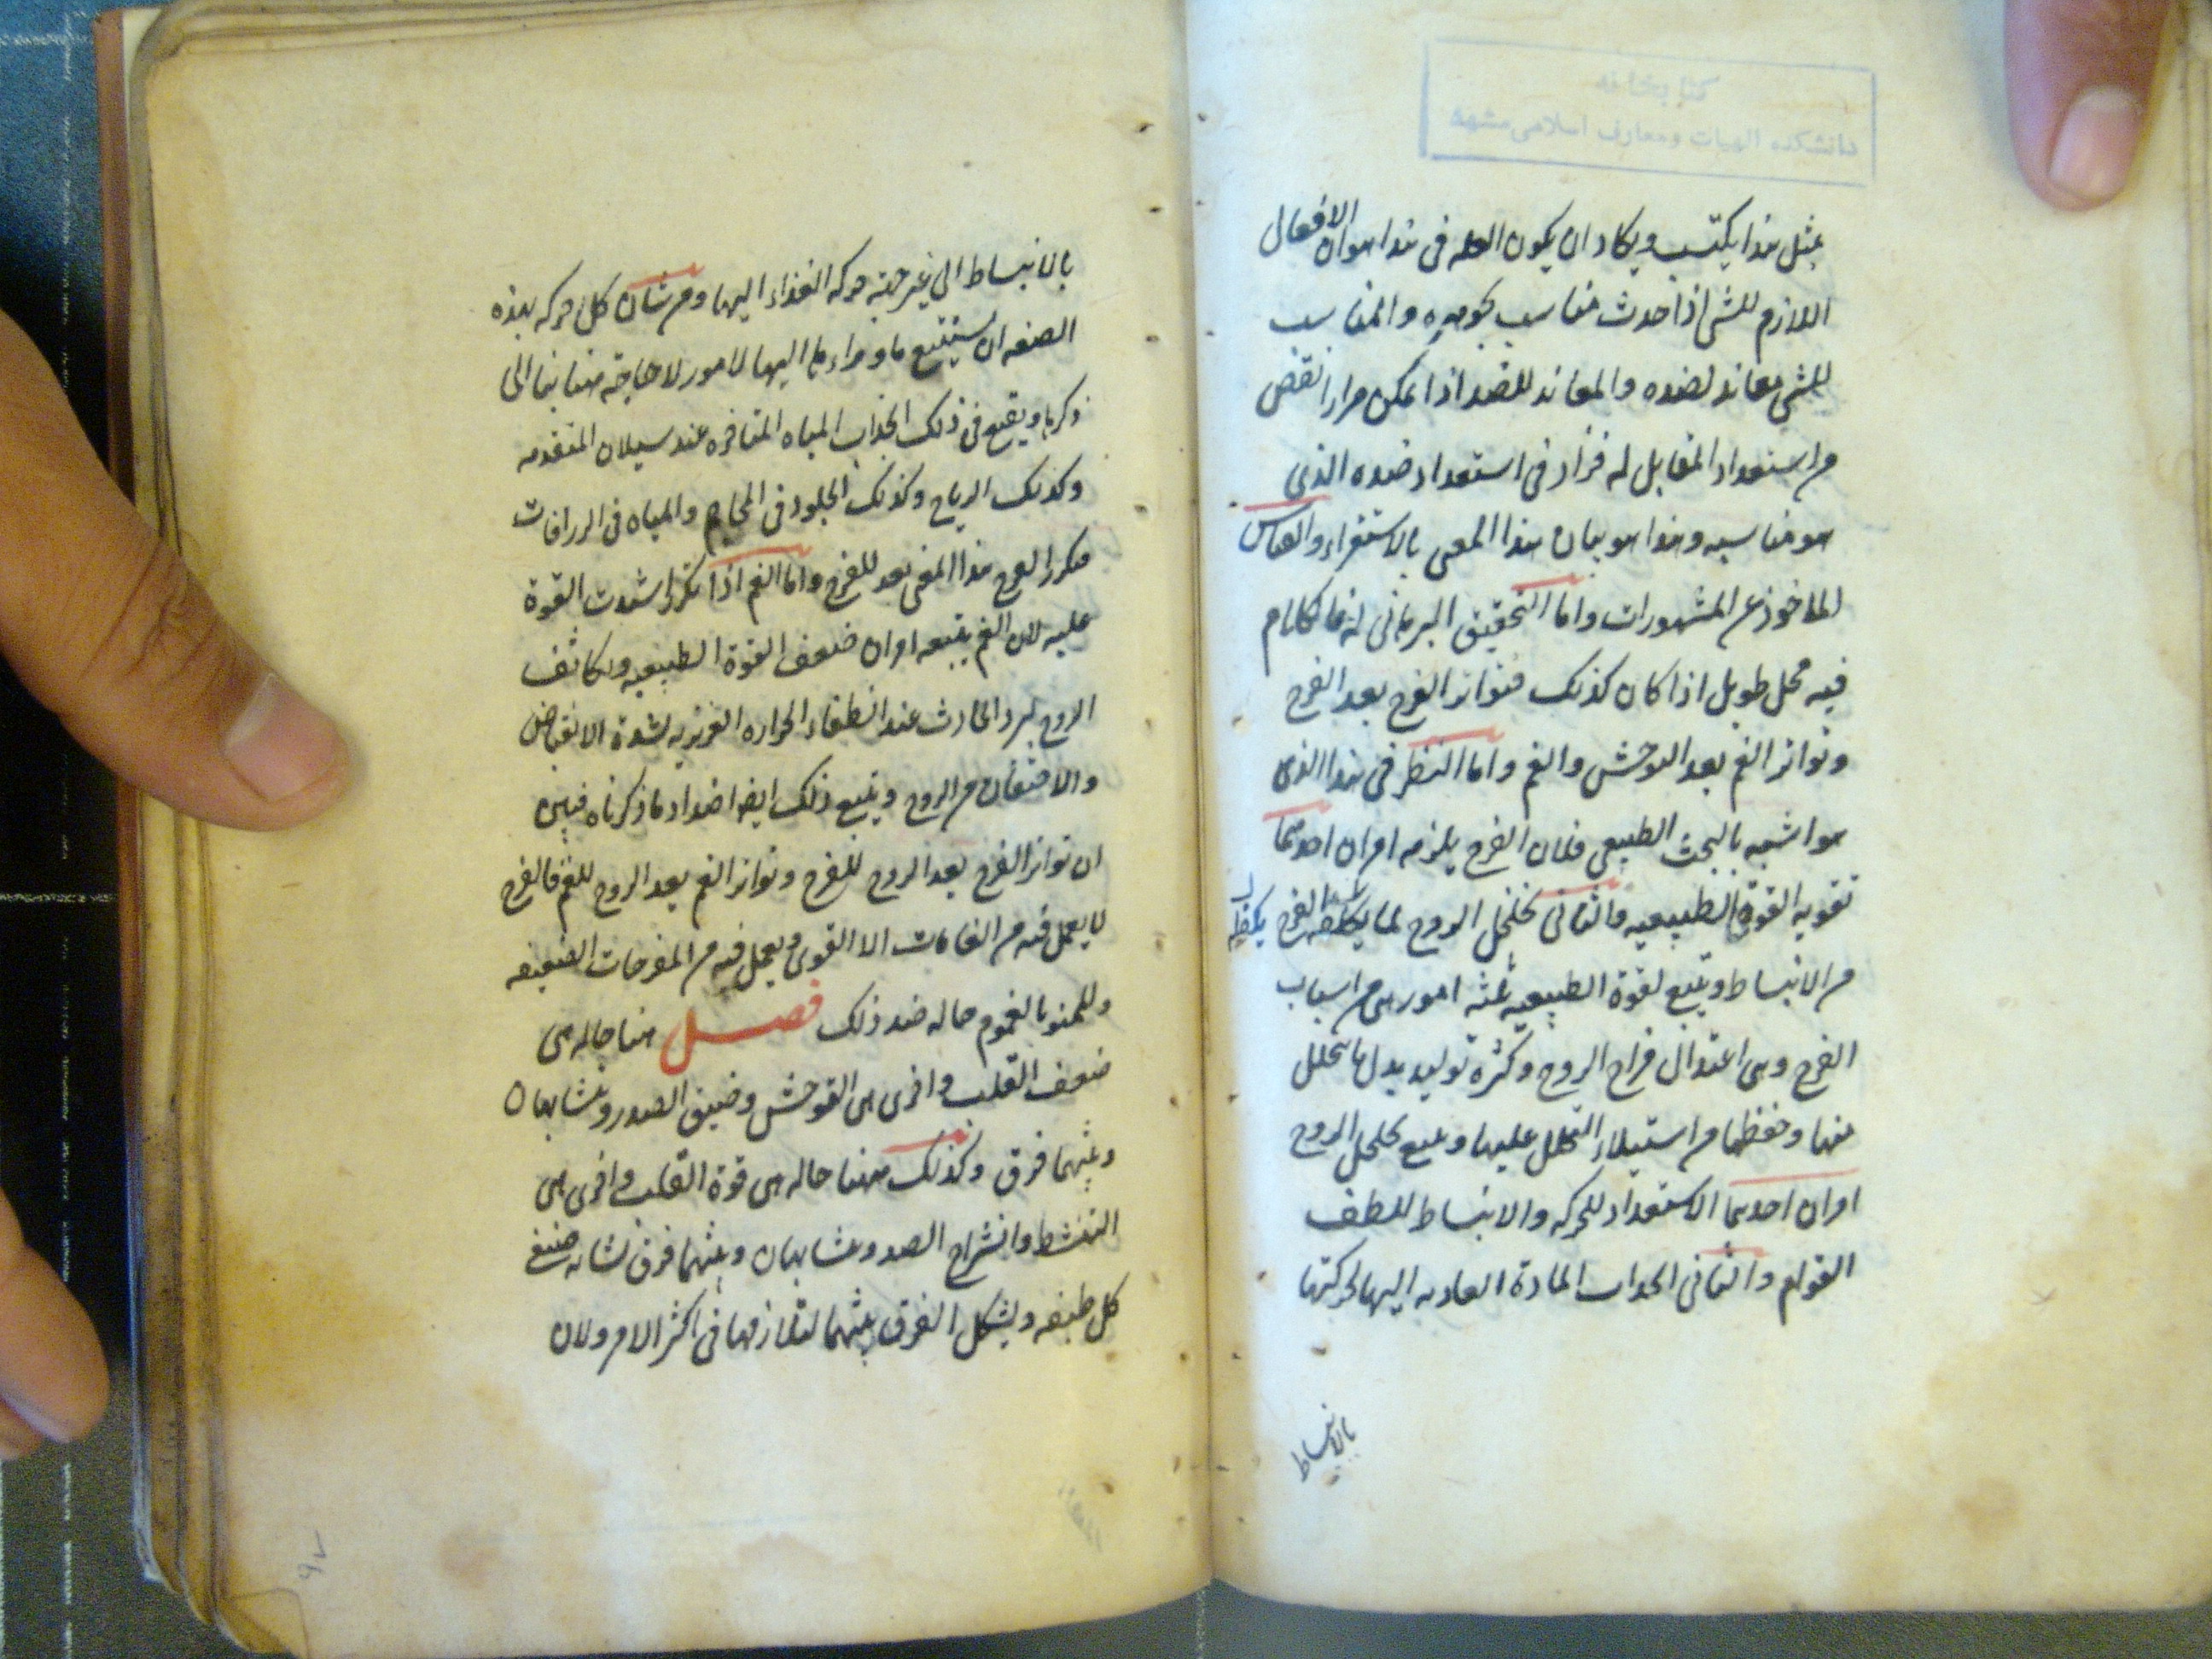 كتابخانه
دانشكده الهيات ومعارف اسلامى مشهد
بمثل هذا يكتسب ويكاد ان يكون العله فى هذا هو ان الافعال
اللازم للشى اذا حدث مناسب لجوهره والمناسب
للشى معاند لضده والمعاند للضد اذا تمكن مرارا نقض
من استعداد المقابل له فزاد فى استعداد ضده الذى
هو مناسبه وهذا هو بيان هذا المعى بالاستقراء والقياس
الماخوذ عن المشهورات واما التحقيق البرهانى له فالكلام
فيه محل طويل اذا كان كذلك فتواتر الفرح يعد الفرح
وتواتر الغم يعد التوحش والغم واما النظر فى هذا الذى
هو اشبه بالبحث الطبيعى فلان الفرح يلزمه امران احدهما
تقويه القوة الطبيعيه والثانى تخلخل الروح لما يكلفه الفرح
من الانبساط ويتبع لقوة الطبيعيه ثلثه امور هى من اسباب
الفرح وهى اعتدال مزاج الروح وكثره توليد بدل ما يتحلل
منها وحفظها من استيلاء التحلل عليها ويتبع تخلخل الروح
امران احدهما الاستعداد للحركه والانبساط للطف
القوام والثانى انجذاب المادة العاديه اليها لحركتها
بالانبساط
بالانبساط الى غير جهة حركه الغذاء اليها ومن شان كل حركه بهذه
الصفه ان يستتبع ما وراءها اليها لامور لا حاجة هنا بنا الى
ذكرها ويقنع فى ذلك انجذاب المياه المتاخره عند سيلان المتقدمه
وكذلك الرياح وكذلك الجلود فى المحاجم والمياه فى الزراقات
فتكرر الفرح لهذا المعنى يعد للفرح واما الغم اذا تكرر اشتدت القوة
عليه لان الغم يتبعه امران ضعف القوة الطبيعيه وتكاثف
الروح لبرد الحادث عند انطفاء الحراره الغريزيه لشدة الانقباض
والاختقان من الروح ويتبع ذلك ايضا اضداد ما ذكرناه فتبين
ان تواتر الفرح يعد الروح للفرح وتواتر الغم يعد الروح للغم فالفرح
لا يعمل فيه من الغامات الا القوى ويعمل فيه من المفرحات الضعيفه
وللمنو بالغموم حاله ضد ذلك فصل هنا حاله هى
ضعف القلب واخرى هى التوحش وضيق الصدر وتشابهان
وبينهما فرق وكذلك ههنا حاله هى قوة القلب واخرى هى
التنشط وانشراح الصدر وتشابهان وبينهما فرق
كل طبقه ويشكل الفرق بينهما لتلازمهما فى اكثر الامر ولان
٩٧